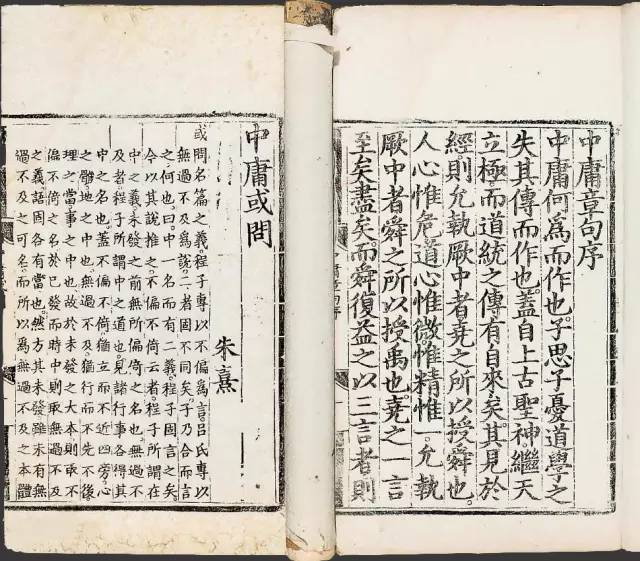 中庸章句序
中庸何爲而作也子思子憂道學之
失其傳而作也蓋自上古聖神繼天
立極而道統之傳有自來矣其見於
經則允執厥中者堯之所以授舜也
人心惟危道心惟微惟精惟一允執
厥中者舜之所以授禹也堯之一言
至矣盡矣而舜復益之以三言者則
中庸或問
朱熹
或問名篇之義程子專以不偏爲言呂氏專以
無過不及爲說二者固不同矣子乃合而言
之何也曰中一名而有二義程子固言之矣
今以其說推之不偏不倚云者程子所謂在
中之義未發之前無所偏倚之名也無過不
及者程子所謂中之道也見諸行事各得其
中之名也蓋不偏不倚猶立而不近四旁心
之體地之中也無過不及猶行而不先不後
理之當事之中也故於未發之大本則取不
偏不倚之名於已發而時中則取無過不及
之義語固各有當也然方其未發雖未有無
過不及之可名而所以爲無過不及之本體